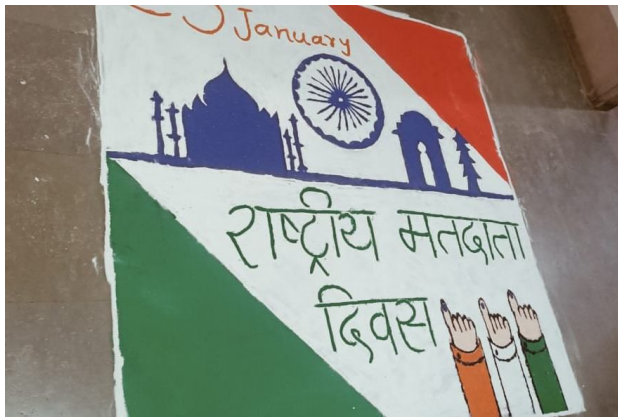 January
राष्ट्रीय मतदाता
दिवस